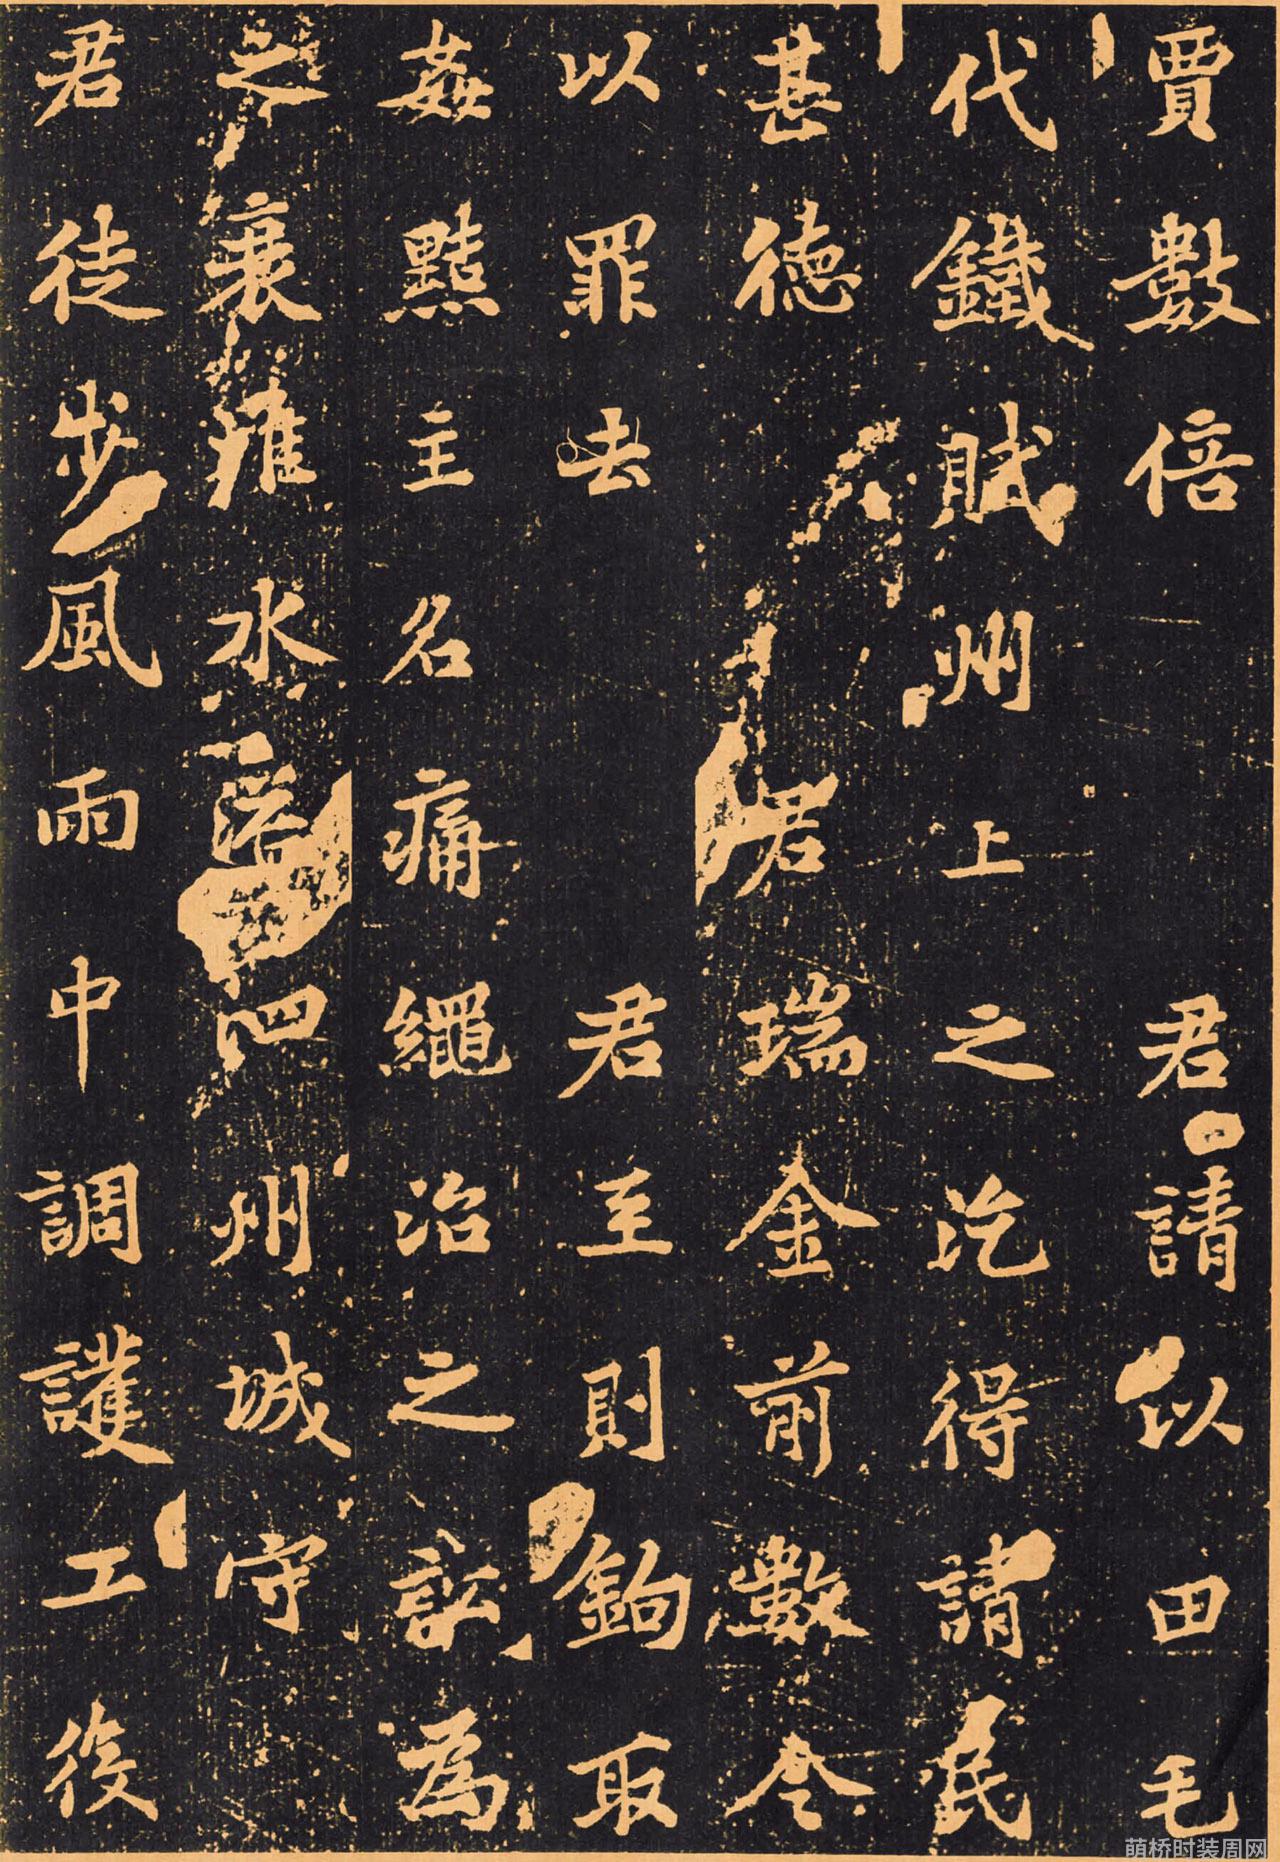 賈數倍 君請以田毛
代鐵賦州上之汔得請民
甚德 君瑞金前數令
以罪去 君至則鉤取
姦黠主名痛繩治之訟為
之衰淮水溢泗州城守
君徒步風雨中調護工役
萌桥时装周网